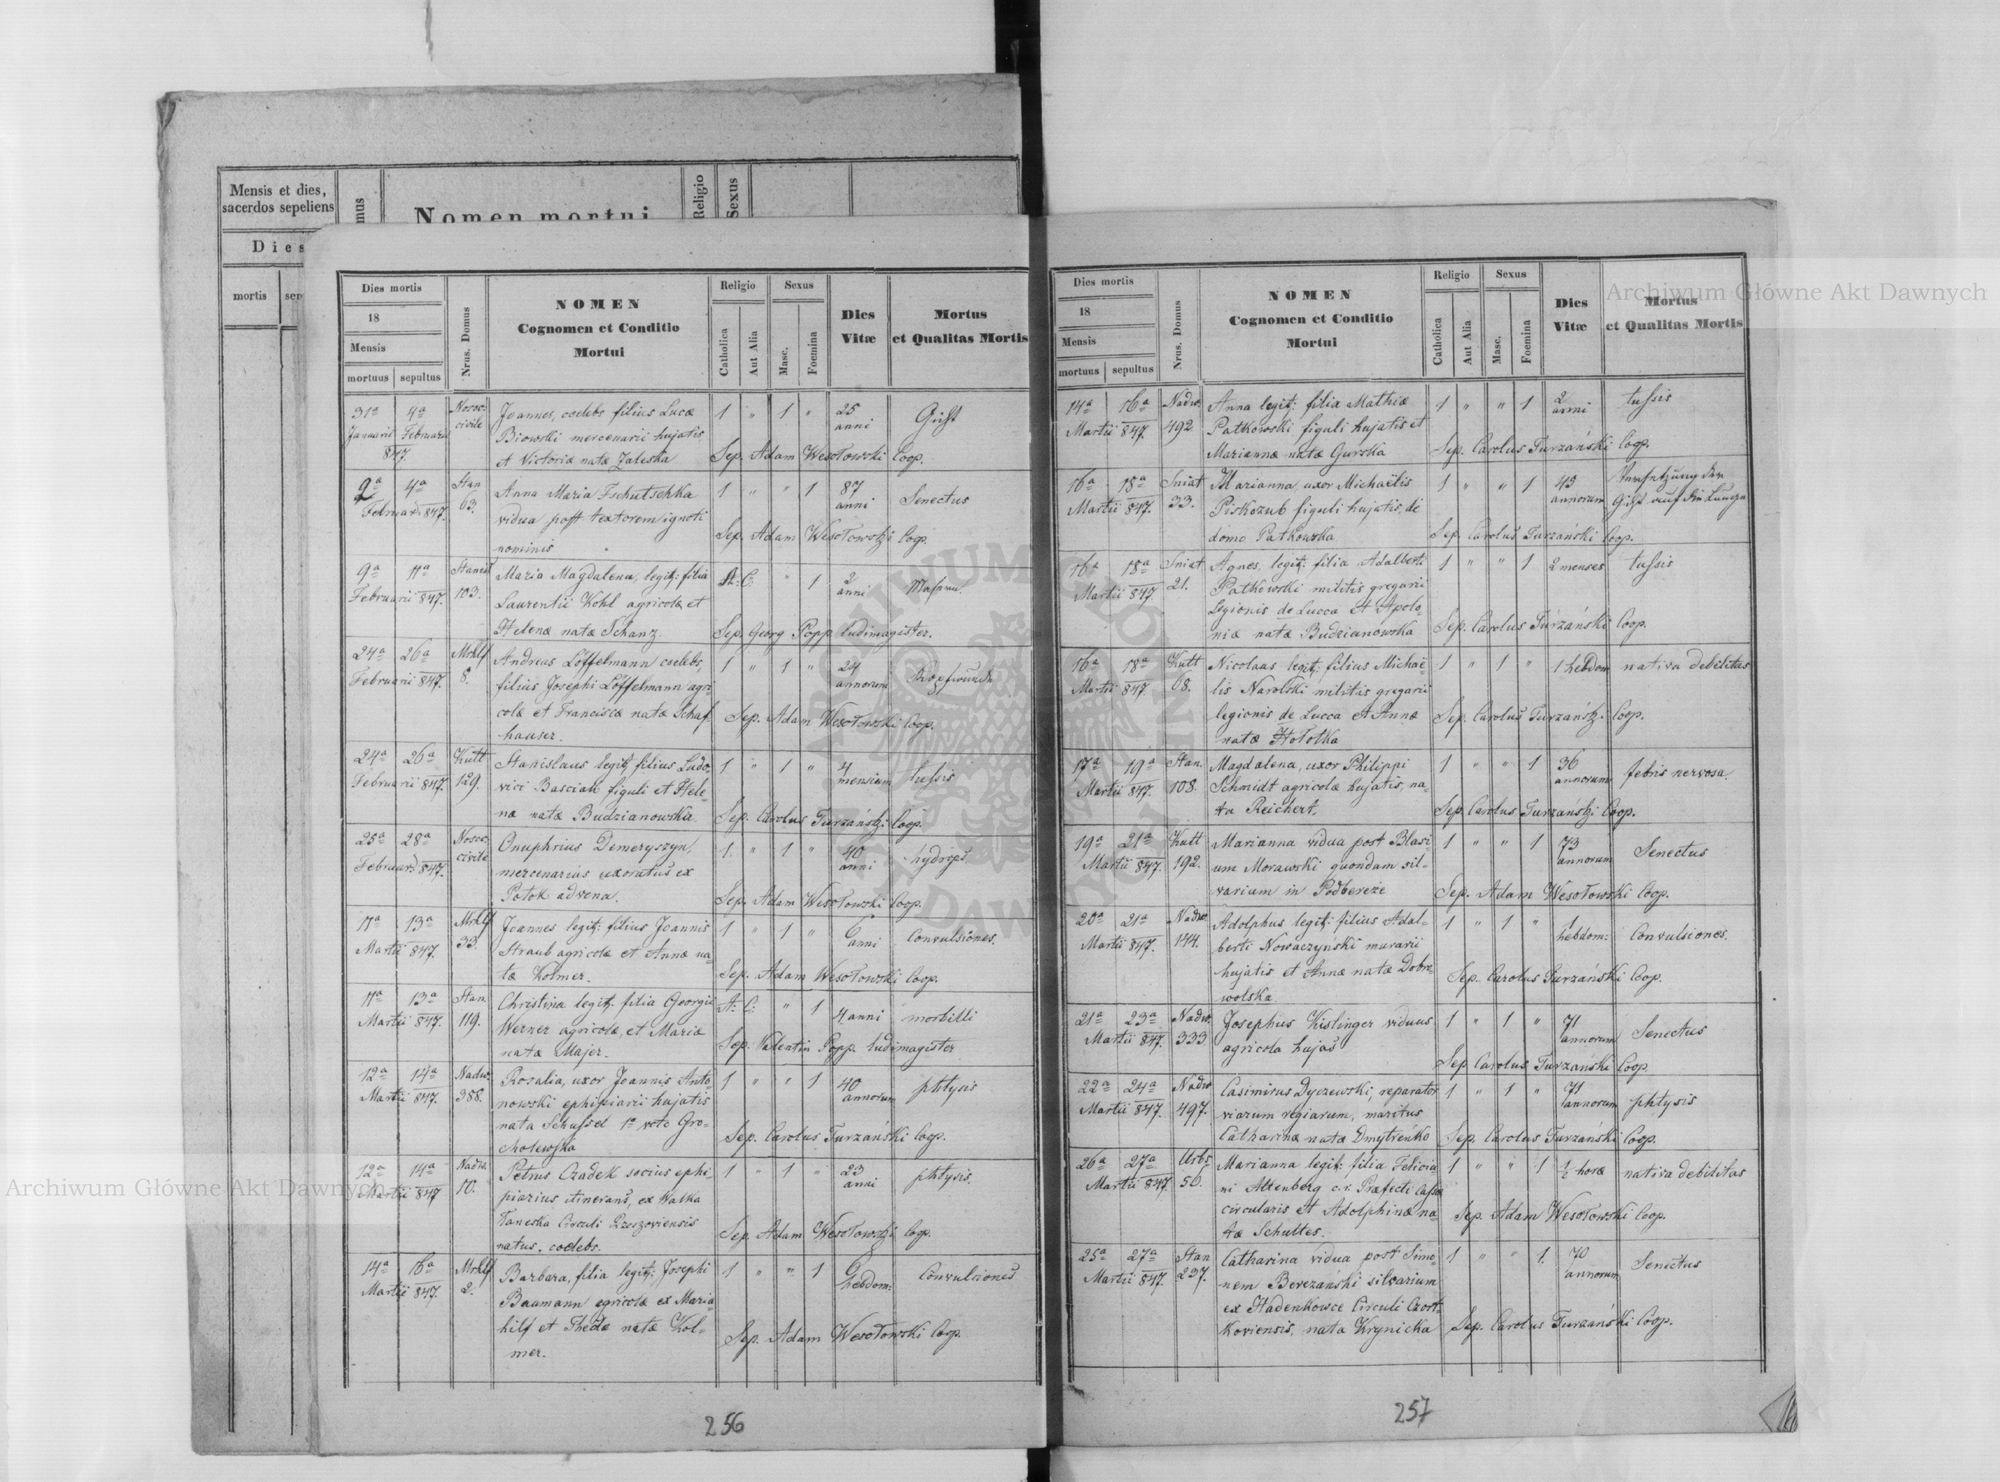 Mensis et dies,
sacerdos sepeliens
mus
Nomen mortui
Religio
Sexus
Dies
mortis
sep
Dies mortis
18
Mensis
mortuus sepultus
Nrus. Domus
NOMEN
Cognomen et Conditio
Mortui
Religio
Catholica
Aut Alia
Sexus
Masc.
Foemina
Dies
Vitæ
Mortus
et Qualitas Mortis
31a 4a Nosoc: Joannes, coelebs filius Lucæ 1 " 1 " 25 Gicht
Januarii Februarii civile Biowski mercenarii hujatis anni
847 et Victoriæ natæ Zaleska Sep. Adam Wesołowski Coop.
2a 4a Stan Anna Maria Tschutschka 1 " " 1 87 Senectus
Februarii 847. 63. vidua post textorem ignoti anni
nominis Sep. Adam Wesołowski Coop.
9a 11a Stanisl Maria Magdalena, legit: filia A: C: " 1 2
Februarii 847. 103. Laurentii Kohl agricolæ et anni
Helenæ natæ Schanz. Sep. Georg Popp ludimagister.
24a 26a Mrhlf Andreas Löffelmann coelebs, 1 " 1 " 24 Kopfwunde
Februarii 847. 8. filius Josephi Löffelmann agri annorum
colæ et Franciscæ natæ Schaf Sep. Adam Wesołowski Coop.
hauser.
24a 26a Kutt Stanislaus legit: filius Ludo- 1 " 1 " 4 tussis
Februarii 847. 129. vici Bascian figuli et Hele- mensium
næ natæ Budzianowska. Sep. Carolus Turzański Coop.
25a 28a Nosoc: Onuphrius Demeryszyn, 1. " 1 " 40 hydrops.
Februarii 847. civile mercenarius uxoratus ex anni
Potok advena. Sep. Adam Wesołowski Coop.
11a 13a Mrhlf Joannes legit: filius Joannis 1 " 1 " 6 Convulsiones.
Martii 847. 33. Straub agricolæ et Annæ na- anni
tæ Kolmer. Sep. Adam Wesołowski Coop.
11a 13a Stan. Christina legit: filia Georgii A: C: " 1 4 anni morbilli
Martii 847. 119. Werner agricolæ, et Mariæ
natæ Majer. Sep. Valentin Popp. ludimagister
12a 14a Nadw. Rosalia, uxor Joannis Anto- 1 " " 1 40 phtysis
Martii 847. 388. nowski ephipiarii hujatis annorum
nata Schussel 1o voto Gro-
cholewska Sep. Carolus Turzański Coop.
12a 14a Nadw. Petrus Czadek socius ephi- 1 " 1 " 23 phtysis.
Martii 847 10. piarius itinerans, ex Walka anni
Taneska Circuli Rzeszoviensis
natus, coelebs. Sep. Adam Wesołowski Coop.
14a 16a Mrhlf Barbara, filia legit: Josephi 1 " " 1 6 Convulsiones
Martii 847. 2. Baumann agricolæ ex Maria- hebdom:
hilf et Thedæ natæ Kol- Sep. Adam Wesołowski Coop.
mer.
256
Dies mortis
18
Mensis
mortuus sepultus
Nrus. Domus
NOMEN
Cognomen et Conditio
Mortui
Religio
Catholica
Aut Alia
Sexus
Masc.
Foemina
Dies
Vitæ
Mortus
et Qualitas Mortis
14a 16a Nadw. Anna legit: filia Mathiæ 1 " " 1 2 tussis
Martii 847. 492. Patkowski figuli hujatis et anni
Mariannæ natæ Gurska Sep. Carolus Turzański Coop.
16a 18a Sniat Marianna, uxor Michaëlis 1 " " 1 43 Versetzung der
Martii 847. 33. Piskozub figuli hujatis, de annorum Gicht auf die Lunge
domo Patkowska Sep. Carolus Turzański Coop.
16a 18a Sniat Agnes, legit: filia Adalberti 1 " " 1 2 menses tussis
Martii 847 21. Patkowski militis gregarii
legionis de Lucca et Apolo-
niæ natæ Budzianowska Sep. Carolus Turzański Coop.
16a 18a Kutt Nicolaus legit: filius Michaë- 1 " 1 " 1 hebdom nativa debilitas
Martii 847. 68. lis Narolski militis gregarii
legionis de Lucca et Annæ Sep. Carolus Turzański Coop.
natæ Hołotka
17a 19a Stan. Magdalena, uxor Philippi 1 " " 1 36 febris nervosa.
Martii 847. 108. Schmidt agricolæ hujatis, na- annorum
ta Reichert. Sep. Carolus Turzański Coop.
19a 21a Kutt Marianna vidua post Blasi- 1 " " 1 73 Senectus
Martii 847. 192. um Morawski quondam sil- annorum
varium in Podbereze Sep. Adam Wesołowski Coop.
20a 21a Nadw. Adolphus legit: filius Adal- 1 " 1 " 1 Convulsiones.
Martii 847. 144. berti Nowaczyński murarii hebdom:
hujatis et Annæ natæ Dobro- Sep. Carolus Turzański Coop.
wolska
21a 23a Nadw. Josephus Kislinger viduus 1 " 1 " 71 Senectus
Martii 847. 333. agricola hujas annorum
Sep. Carolus Turzański Coop.
22a 24a Nadw Casimirus Dyczewski, reparator 1 " 1 " 71 phtysis
Martii 847. 497. viarum regiarum, maritus annorum
Catharinæ natæ Dmytreńko Sep. Carolus Turzański Coop.
26a 27a Urbs, Marianna legit: filia Felicia 1 " " 1 ½ horæ nativa debilitas
Martii 847. 56. ni Altenberg c. r. Præfecti Cassæ
circularis et Adolphinæ na- Sep. Adam Wesołowski Coop.
tæ Schultes.
25a 27a Stan Catharina vidua post Simo- 1 " " 1. 70 Senectus
Martii 847. 237. nem Berezański silvarium annorum
ex Hadenkowce Circuli Czort-
koviensis, nata Krynicka Sep. Carolus Turzański Coop.
257
Archiwum Główne Akt Dawnych
Archiwum Główne Akt Dawnych
ARCHIWUM GŁÓWNE AKT DAWNYCH